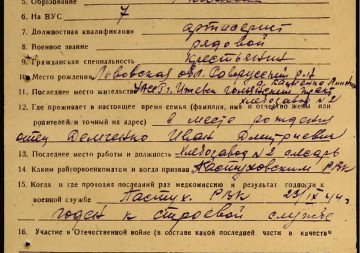 5. Образование
6. На ВУС 7
7. Должностная квалификация артиллерист
8. Военное звание рядовой
9. Гражданская специальность
10. Место рождения Львовская обл.
11. Последнее место жительства УАССР г. Ижевск тракт
хлебозавод № 2
12. Где проживает в настоящее время семья (фамилия, имя и отчество жены или
родителей и точный их адрес) в месте рождения
отец Демченко Иван Дмитриевич
13. Последнее место работы и должность хлебозавод № 2 слесарь
14. Каким райгорвоенкоматом и когда призван Пастуховским РВК
15. Когда и где проходил последний раз медкомиссию и результат годности к
военной службе Пастух. РВК 23/IX 44 г.
годен к строевой службе
16. Участие в Отечественной войне (в составе какой последней части и в качестве